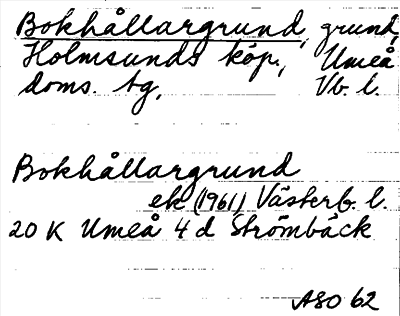 Bokhållargrund, grund,
Holmsunds köp., Umeå
doms. tg, Vb. l.
Bokhållargrund
ek (1961) Västerb. l.
20 K Umeå 4 d Strömbäck
ASO 62